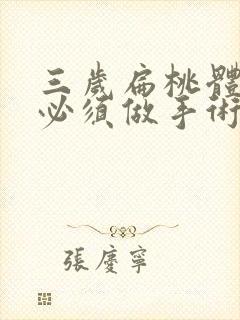 三歲扁桃體
必須做手術
張慶寧